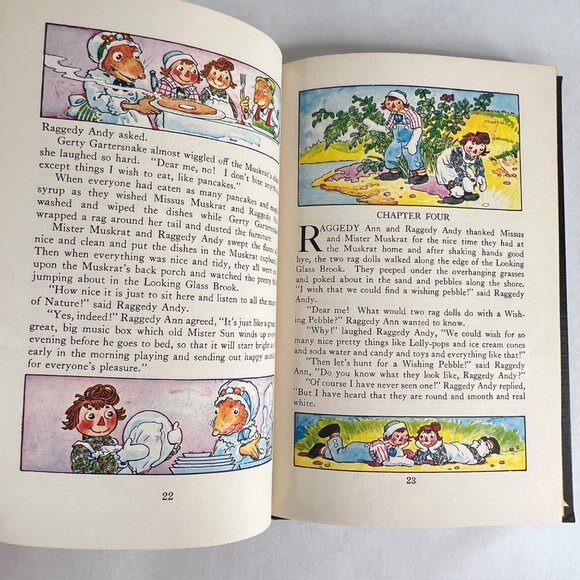 Raggedy Andy asked.
Gerty Gartersnake almost wiggled off the Muskrat's
she laughed so hard. "Dear me, no! I don't bite
except things I wish to eat, like pancakes."
When everyone had eaten as many pancakes and
syrup as they wished Missus Muskrat and Raggedy
washed and wiped the dishes while Gerty Gartersnake
wrapped a rag around her tail and dusted the furniture.
Mister Muskrat and Raggedy Andy swept the floors
nice and clean and put the dishes in the Muskrat cupboard.
Then when everything was nice and tidy, they all went
upon the Muskrat's back porch and watched the pretty
jumping about in the Looking Glass Brook.
"How nice it is just to sit here and listen to all the
of Nature!" said Raggedy Andy.
"Yes, indeed!" Raggedy Ann agreed, "It's just like a
great, big music box which old Mister Sun winds up
evening before he goes to bed, so that it will start bright
early in the morning playing and sending out happy sounds
for everyone's pleasure."
22
CHAPTER FOUR
RAGGEDY Ann and Raggedy Andy thanked Missus
and Mister Muskrat for the nice time they had at
the Muskrat home and after shaking hands good
bye, the two rag dolls walked along the edge of the Looking
Glass Brook. They peeped under the overhanging grasses
and poked about in the sand and pebbles along the shore.
"I wish that we could find a wishing pebble!" said Raggedy
Andy.
"Dear me! What would two rag dolls do with a Wish-
ing Pebble?" Raggedy Ann wanted to know.
"Why!" laughed Raggedy Andy, "We could wish for so
many nice pretty things like Lolly-pops and ice cream cones
and soda water and candy and toys and everything like that!"
"Then let's hunt for a Wishing Pebble!" said Raggedy
Ann, "Do you know what they look like, Raggedy Andy?"
"Of course I have never seen one!" Raggedy Andy replied,
"But I have heard that they are round and smooth and real
white.
23